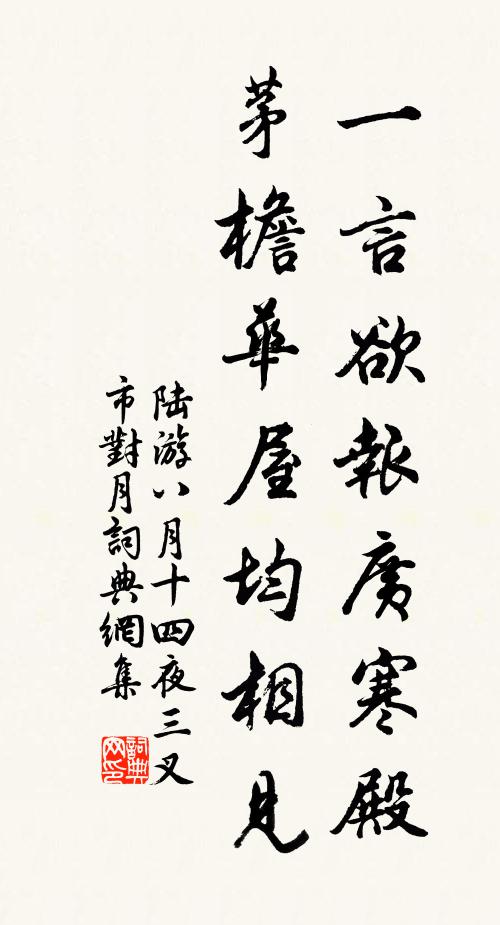 一言欲報廣寒殿
茅檐華屋均相見
陆游八月十四夜三叉
市對月詞典網集
詞典
网印